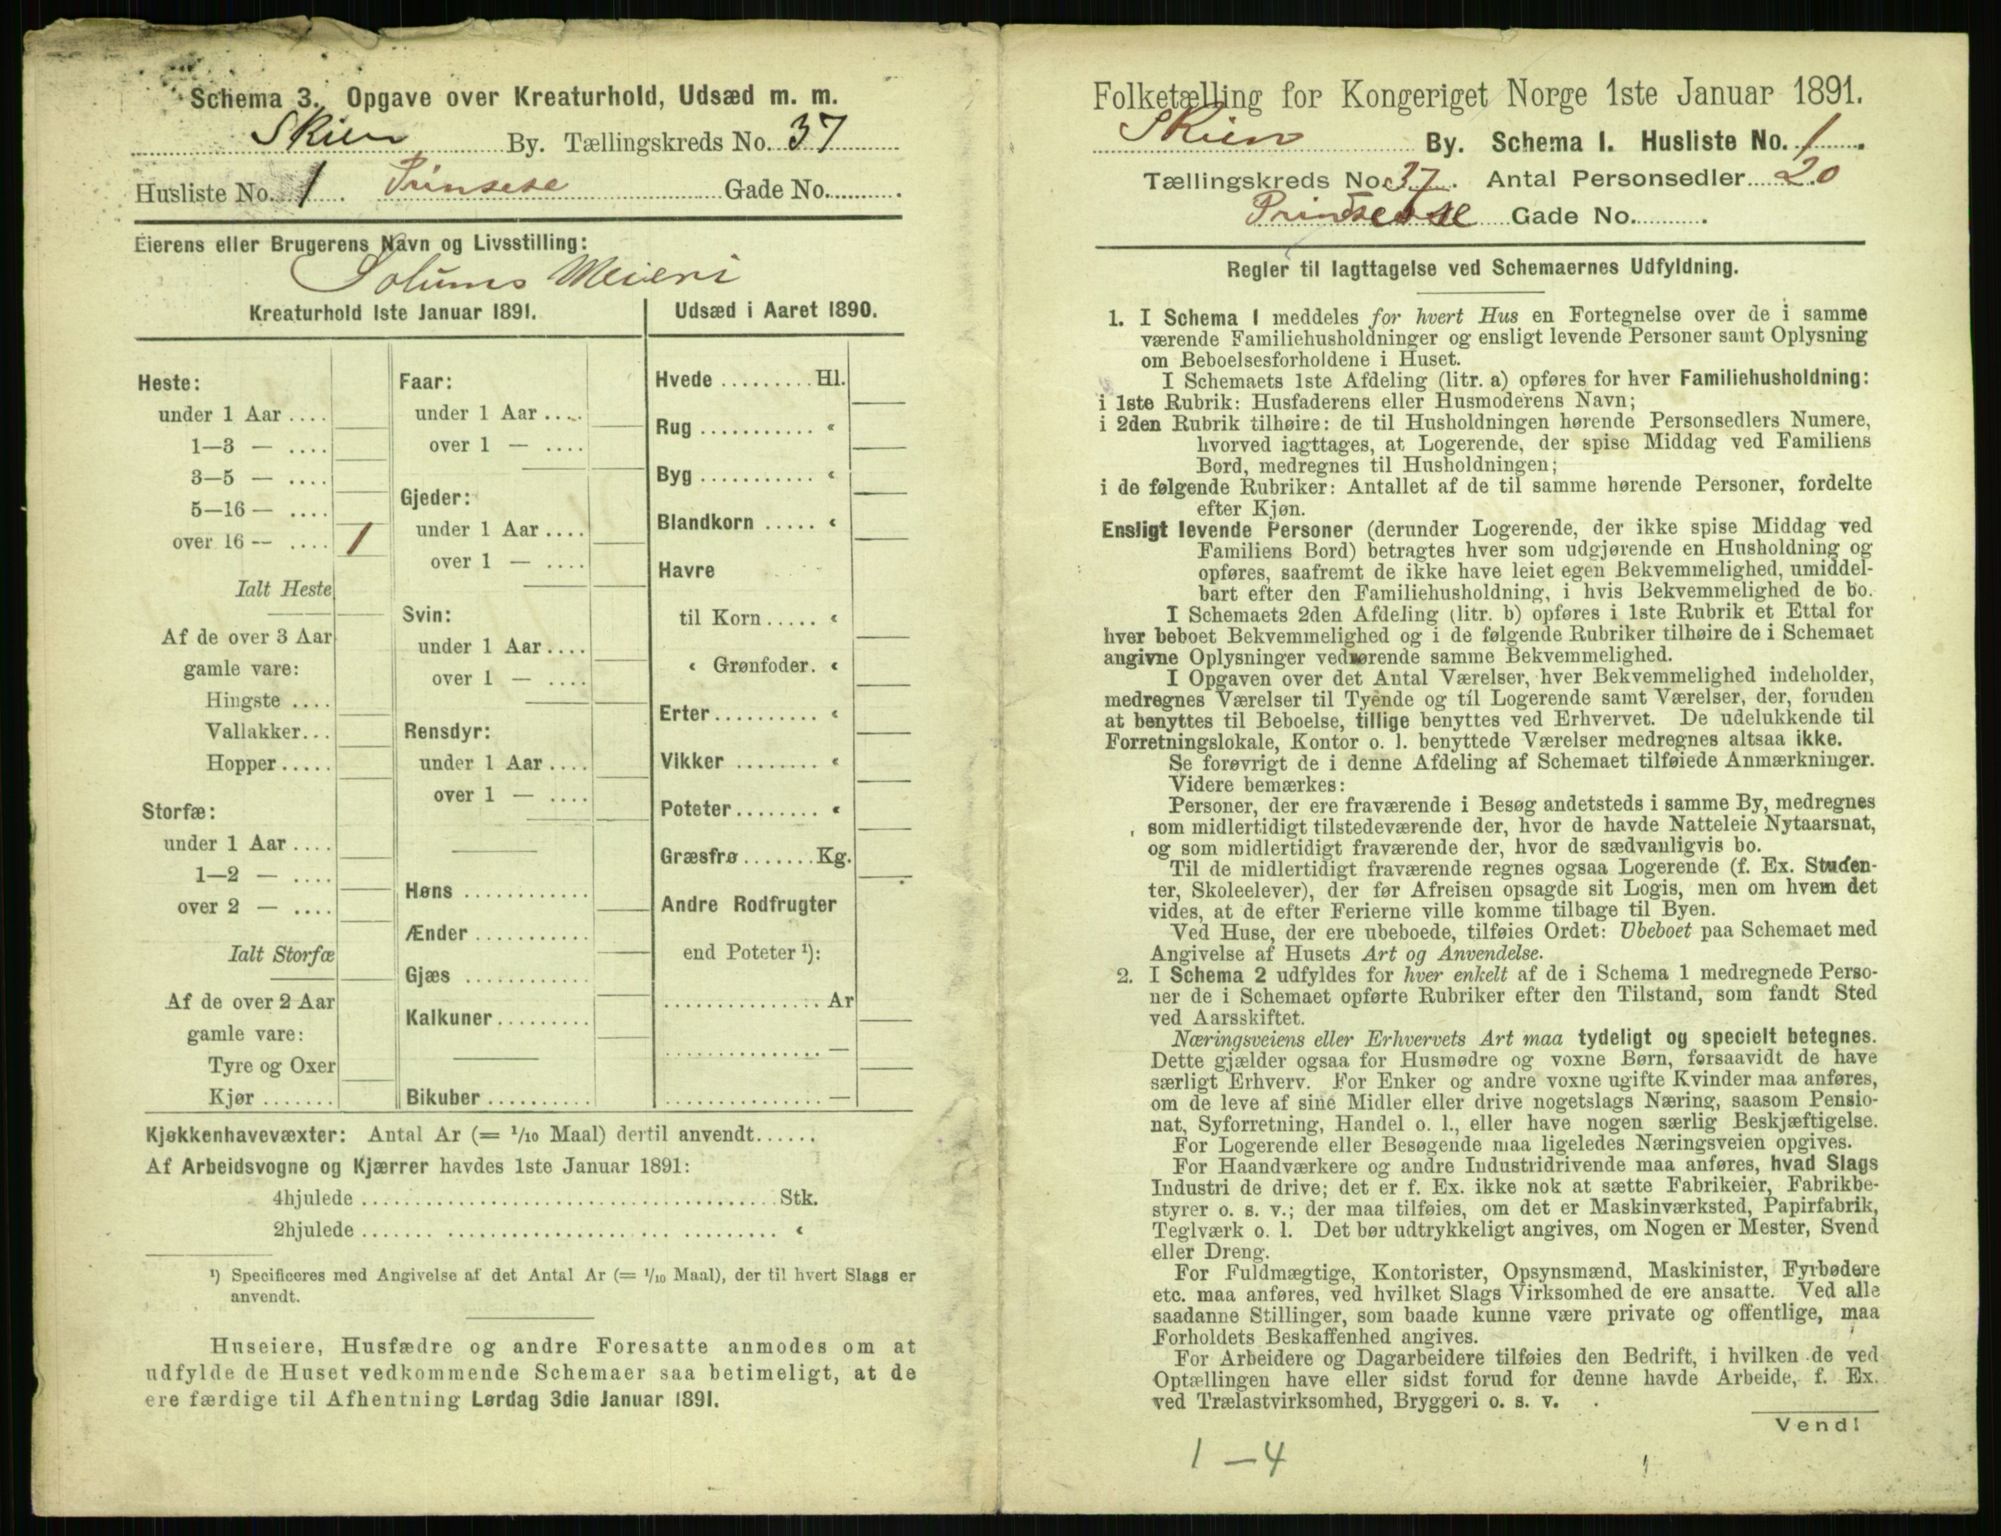 Schema 3. Opgave over Kreaturhold, Udsæd m. m.
Skien By. Tællingskreds No. 37
Husliste No. 1 Prinsese Gade No.
Eierens eller Brugerens Navn og Livsstilling:
Solums Meieri
Kreaturhold 1ste Januar 1891.
Heste:
under 1 Aar ....
1—3 — ....
3—5 — ....
5—16 — ....
over 16 — .... 1
Ialt Heste
Af de over 3 Aar
gamle vare:
Hingste ....
Vallakker...
Hopper.....
Storfæ:
under 1 Aar ....
1—2 — ....
over 2 — ....
Ialt Storfæ
Af de over 2 Aar
gamle vare:
Tyre og Oxer
Kjør .......
Faar:
under 1 Aar ....
over 1 — ....
Gjeder:
under 1 Aar ....
over 1 — ....
Svin:
under 1 Aar ....
over 1 — ....
Rensdyr:
under 1 Aar ....
over 1 — ....
Høns ............
Ænder ...........
Gjæs ............
Kalkuner.........
Bikuber ..........
Udsæd i Aaret 1890.
Hvede ......... Hl.
Rug ........... “
Byg ........... “
Blandkorn ..... “
Havre
til Korn ..... “
“ Grønfoder. “
Erter.......... “
Vikker ........ “
Poteter........ “
Græsfrø ....... Kg.
Andre Rodfrugter
end Poteter ¹):
............... Ar
............... —
............... —
Kjøkkenhavevæxter: Antal Ar (= 1/10 Maal) dertil anvendt......
Af Arbeidsvogne og Kjærrer havdes 1ste Januar 1891:
4hjulede ........................................ Stk.
2hjulede ........................................ “
¹) Specificeres med Angivelse af det Antal Ar (= 1/10 Maal), der til hvert Slags er
anvendt.
Huseiere, Husfædre og andre Foresatte anmodes om at
udfylde de Huset vedkommende Schemaer saa betimeligt, at de
ere færdige til Afhentning Lørdag 3die Januar 1891.
Folketælling for Kongeriget Norge 1ste Januar 1891.
Skien By. Schema I. Husliste No. 1
Tællingskreds No. 37. Antal Personsedler 20
Prinsesse Gade No..........
Regler til Iagttagelse ved Schemaernes Udfyldning.
1. I Schema I meddeles for hvert Hus en Fortegnelse over de i samme
værende Familiehusholdninger og ensligt levende Personer samt Oplysning
om Beboelsesforholdene i Huset.
I Schemaets 1ste Afdeling (litr. a) opføres for hver Familiehusholdning:
i 1ste Rubrik: Husfaderens eller Husmoderens Navn;
i 2den Rubrik tilhøire: de til Husholdningen hørende Personsedlers Numere,
hvorved iagttages, at Logerende, der spise Middag ved Familiens
Bord, medregnes til Husholdningen;
i de følgende Rubriker: Antallet af de til samme hørende Personer, fordelte
efter Kjøn.
Ensligt levende Personer (derunder Logerende, der ikke spise Middag ved
Familiens Bord) betragtes hver som udgjørende en Husholdning og
opføres, saafremt de ikke have leiet egen Bekvemmelighed, umiddel-
bart efter den Familiehusholdning, i hvis Bekvemmelighed de bo.
I Schemaets 2den Afdeling (litr. b) opføres i 1ste Rubrik et Ettal for
hver beboet Bekvemmelighed og i de følgende Rubriker tilhøire de i Schemaet
angivne Oplysninger vedrørende samme Bekvemmelighed.
I Opgaven over det Antal Værelser, hver Bekvemmelighed indeholder,
medregnes Værelser til Tyende og til Logerende samt Værelser, der, foruden
at benyttes til Beboelse, tillige benyttes ved Erhvervet. De udelukkende til
Forretningslokale, Kontor o. l. benyttede Værelser medregnes altsaa ikke.
Se forøvrigt de i denne Afdeling af Schemaet tilføiede Anmærkninger.
Videre bemærkes:
Personer, der ere fraværende i Besøg andetsteds i samme By, medregnes
som midlertidigt tilstedeværende der, hvor de havde Natteleie Nytaarsnat,
og som midlertidigt fraværende der, hvor de sædvanligvis bo.
Til de midlertidigt fraværende regnes ogsaa Logerende (f. Ex. Studen-
ter, Skoleelever), der før Afreisen opsagde sit Logis, men om hvem det
vides, at de efter Ferierne ville komme tilbage til Byen.
Ved Huse, der ere ubeboede, tilføies Ordet: Ubeboet paa Schemaet med
Angivelse af Husets Art og Anvendelse.
2. I Schema 2 udfyldes for hver enkelt af de i Schema 1 medregnede Perso-
ner de i Schemaet opførte Rubriker efter den Tilstand, som fandt Sted
ved Aarsskiftet.
Næringsveiens eller Erhvervets Art maa tydeligt og specielt betegnes.
Dette gjælder ogsaa for Husmødre og voxne Børn, forsaavidt de have
særligt Erhverv. For Enker og andre voxne ugifte Kvinder maa anføres,
om de leve af sine Midler eller drive nogetslags Næring, saasom Pensio-
nat, Syforretning, Handel o. l., eller have nogen særlig Beskjæftigelse.
For Logerende eller Besøgende maa ligeledes Næringsveien opgives.
For Haandværkere og andre Industridrivende maa anføres, hvad Slags
Industri de drive; det er f. Ex. ikke nok at sætte Fabrikeier, Fabrikbe-
styrer o. s. v.; der maa tilføies, om det er Maskinværksted, Papirfabrik,
Teglværk o. l. Det bør udtrykkeligt angives, om Nogen er Mester, Svend
eller Dreng.
For Fuldmægtige, Kontorister, Opsynsmænd, Maskinister, Fyrbødere
etc. maa anføres, ved hvilket Slags Virksomhed de ere ansatte. Ved alle
saadanne Stillinger, som baade kunne være private og offentlige, maa
Forholdets Beskaffenhed angives.
For Arbeidere og Dagarbeidere tilføies den Bedrift, i hvilken de ved
Optællingen have eller sidst forud for denne havde Arbeide, f. Ex.
ved Trælastvirksomhed, Bryggeri o. s. v.
Vend!
1 — 4